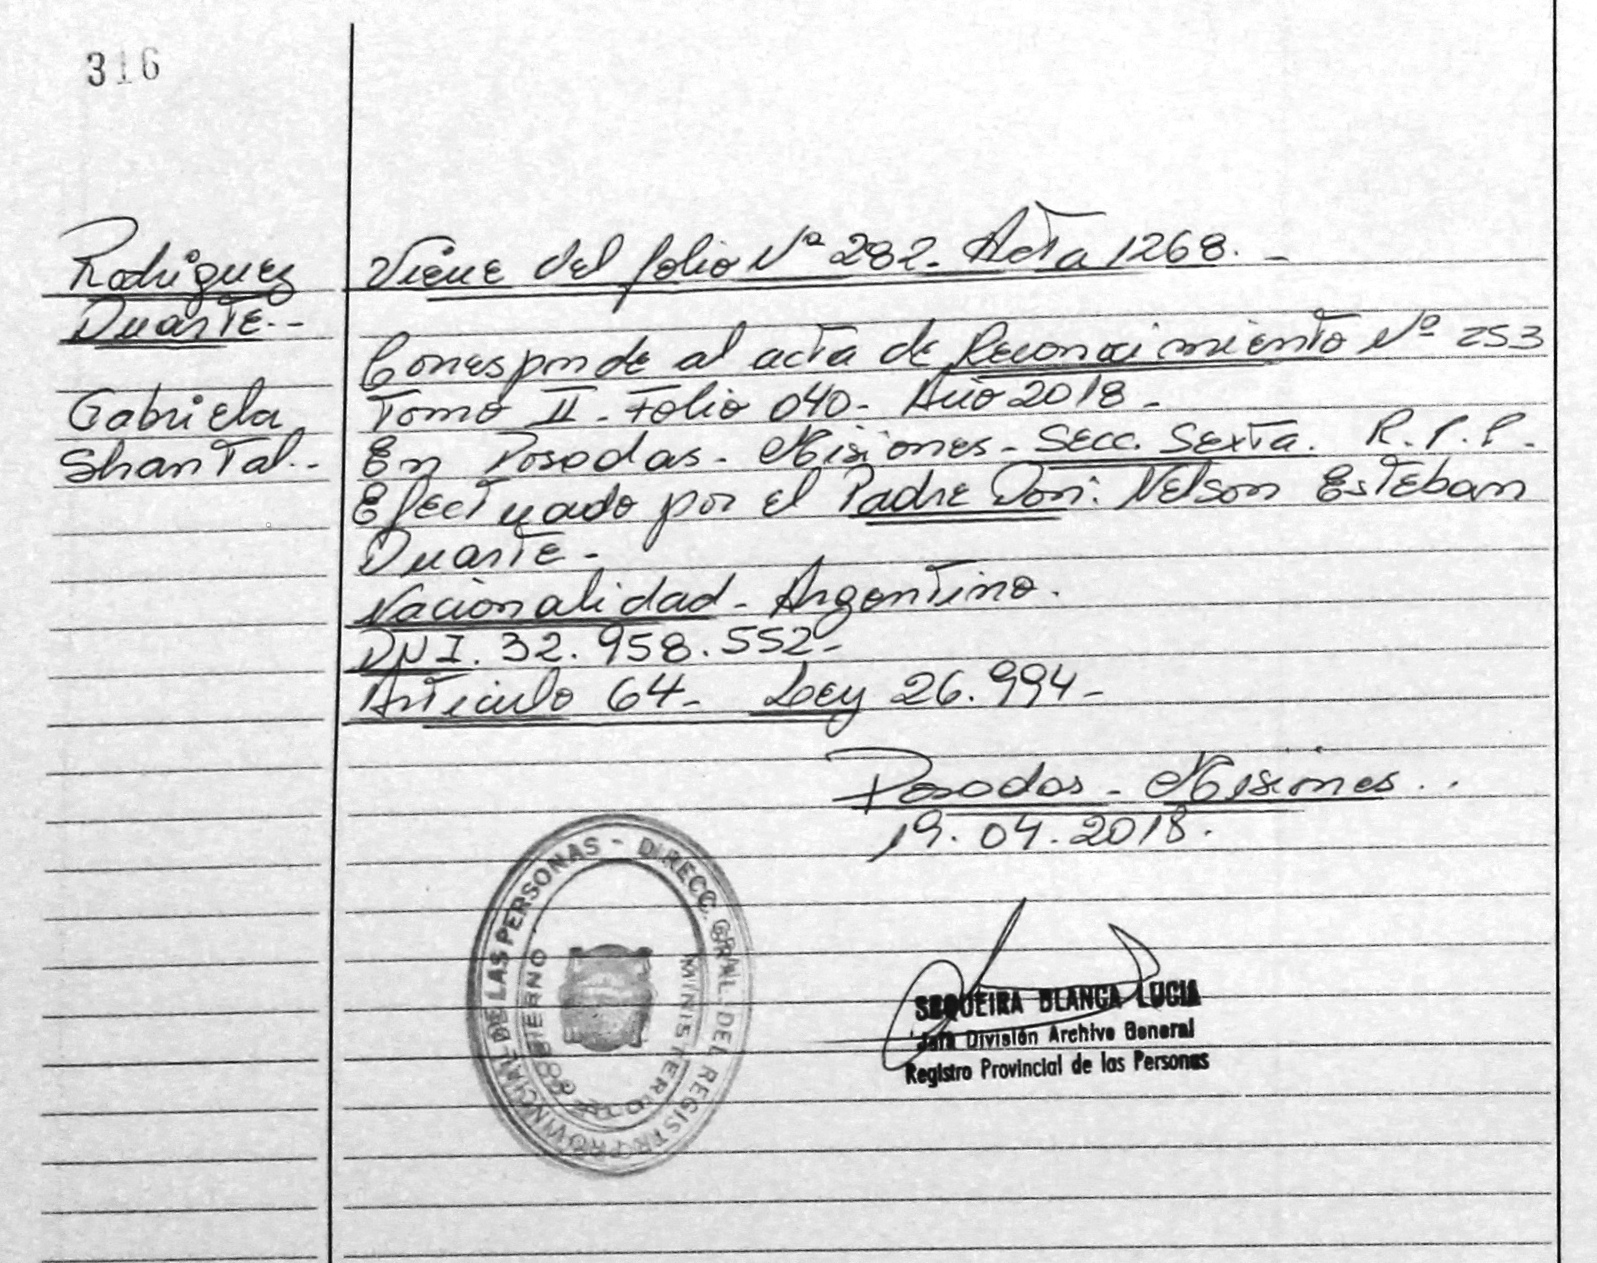 316
Rodriguez
Duarte.--
Gabriela
Shantal.-
Viene del folio Nº 282. Acta 1268.-
Corresponde al acta de Reconocimiento Nº 253
Tomo II - Folio 040- Año 2018-
En Posadas - Misiones - Secc. Sexta. R.P.P.
Efectuado por el Padre Don: Nelson Esteban
Duarte-
Nacionalidad - Argentino.
DNI. 32.958.552-
Artículo 64- Ley 26.994-
Posadas - Misiones..
19.04.2018.
DIRECC. GRAL. DEL REGISTRO PROVINCIAL DE LAS PERSONAS -
MINISTERIO DE GOBIERNO
SEQUEIRA BLANCA LUCIA
Jefa División Archivo General
Registro Provincial de las Personas